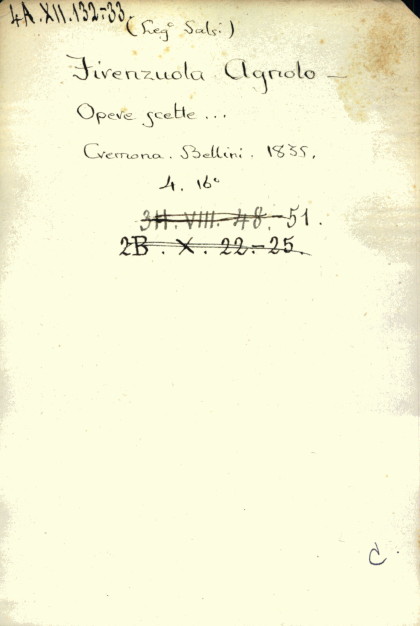 4A.XII.132-33.
(Leg° Salsi)
Firenzuola Agnolo —
Opere scelte ...
Cremona. Bellini. 1835.
4. 16°
3H. VIII. 48.-51.
2B. X. 22.-25.
C.